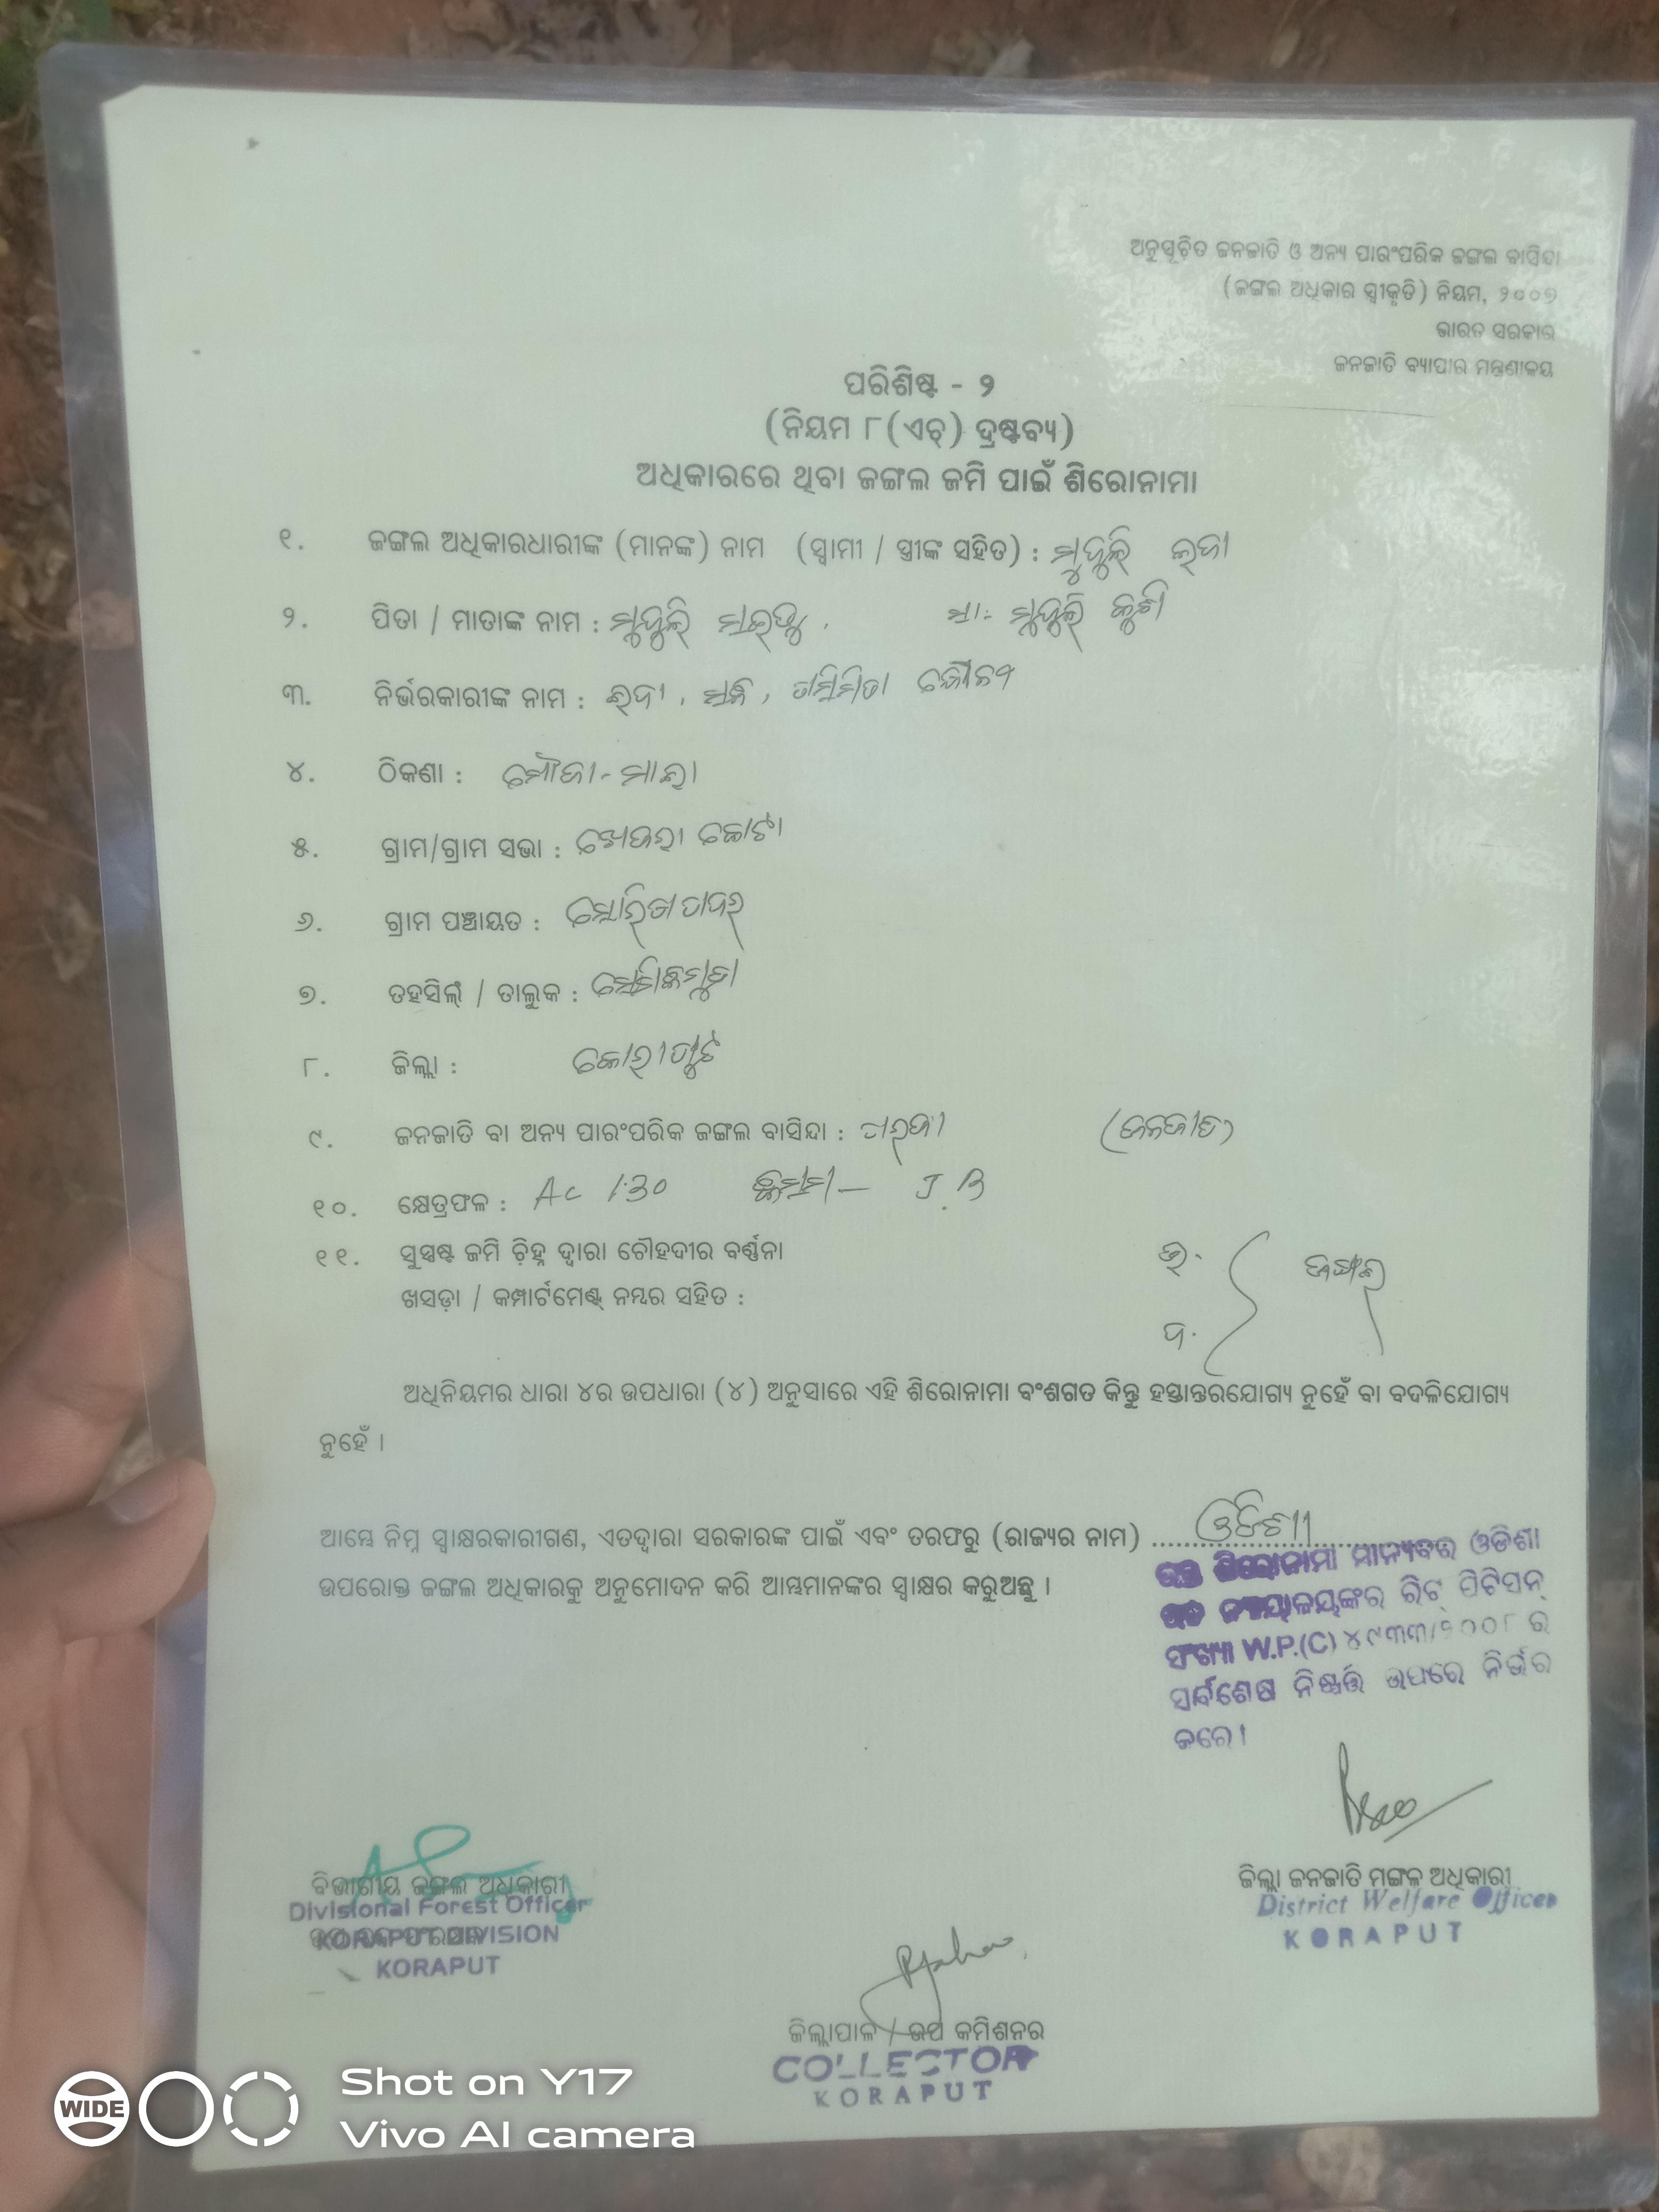 ଅନୁସୂଚିତ ଜନଜାତି ଓ ଅନ୍ୟ ପାରଂପରିକ ଜଙ୍ଗଲ ବାସିନ୍ଦା
(ଜଙ୍ଗଲ ଅଧିକାର ସ୍ୱୀକୃତି) ନିୟମ, ୨୦୦୭
ଭାରତ ସରକାର
ଜନଜାତି ବ୍ୟାପାର ମନ୍ତ୍ରଣାଳୟ
ପରିଶିଷ୍ଟ - ୨
(ନିୟମ ୮(ଏଚ୍) ଦ୍ରଷ୍ଟବ୍ୟ)
ଅଧିକାରରେ ଥିବା ଜଙ୍ଗଲ ଜମି ପାଇଁ ଶିରୋନାମା
୧. ଜଙ୍ଗଲ ଅଧିକାରଧାରୀଙ୍କ (ମାନଙ୍କ) ନାମ (ସ୍ୱାମୀ / ସ୍ତ୍ରୀଙ୍କ ସହିତ) : ମୁଦୁଲି
୨. ପିତା / ମାତାଙ୍କ ନାମ : ମୁଦୁଲି ମୁଦୁଲି
୩. ନିର୍ଭରକାରୀଙ୍କ ନାମ :
୪. ଠିକଣା : ମୌଜା -
୫. ଗ୍ରାମ/ଗ୍ରାମ ସଭା :
୬. ଗ୍ରାମ ପଞ୍ଚାୟତ :
୭. ତହସିଲ୍ / ତାଲୁକ :
୮. ଜିଲ୍ଲା : କୋରାପୁଟ
୯. ଜନଜାତି ବା ଅନ୍ୟ ପାରଂପରିକ ଜଙ୍ଗଲ ବାସିନ୍ଦା : ପରଜା (ଜନଜାତି)
୧୦. କ୍ଷେତ୍ରଫଳ : Ac 1.30 କିସମ - J.B
୧୧. ସୁସ୍ପଷ୍ଟ ଜମି ଚିହ୍ନ ଦ୍ୱାରା ଚୌହଦୀର ବର୍ଣ୍ଣନା
ଖସଡ଼ା / କମ୍ପାର୍ଟମେଣ୍ଟ୍ ନମ୍ବର ସହିତ :
ଉ.
ଦ.
ଜଙ୍ଗଲ
ଅଧିନିୟମର ଧାରା ୪ର ଉପଧାରା (୪) ଅନୁସାରେ ଏହି ଶିରୋନାମା ବଂଶଗତ କିନ୍ତୁ ହସ୍ତାନ୍ତରଯୋଗ୍ୟ ନୁହେଁ ବା ବଦଳିଯୋଗ୍ୟ
ନୁହେଁ ।
ଆମ୍ଭେ ନିମ୍ନ ସ୍ୱାକ୍ଷରକାରୀଗଣ, ଏତଦ୍ୱାରା ସରକାରଙ୍କ ପାଇଁ ଏବଂ ତରଫରୁ (ରାଜ୍ୟର ନାମ) ଓଡିଶା
ଉପରୋକ୍ତ ଜଙ୍ଗଲ ଅଧିକାରକୁ ଅନୁମୋଦନ କରି ଆମ୍ଭମାନଙ୍କର ସ୍ୱାକ୍ଷର କରୁଅଛୁ ।
ଶିରୋନାମା ମାନ୍ୟବର ଓଡିଶା
ନ୍ୟାୟାଳୟଙ୍କର ରିଟ୍ ପିଟିସନ୍
ସଂଖ୍ୟା W.P.(C) ୪୯୩୩/୨୦୦୮ ର
ସର୍ବଶେଷ ନିଷ୍ପତ୍ତି ଉପରେ ନିର୍ଭର
କରେ ।
ବିଭାଗୀୟ ଜଙ୍ଗଲ ଅଧିକାରୀ
Divisional Forest Officer
KORAPUT DIVISION
KORAPUT
ଜିଲ୍ଲା ଜନଜାତି ମଙ୍ଗଳ ଅଧିକାରୀ
District Welfare Officer
KORAPUT
ଜିଲ୍ଲାପାଳ / ଉପ କମିଶନର
COLLECTOR
KORAPUT
WIDE
Shot on Y17
Vivo AI camera